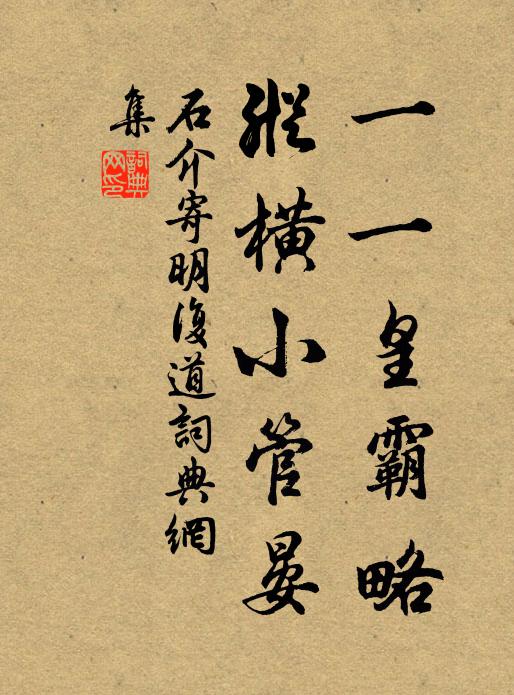 一一皇霸略
縱橫小管晏
石介寄明復道詞典網
集
詞典
网印